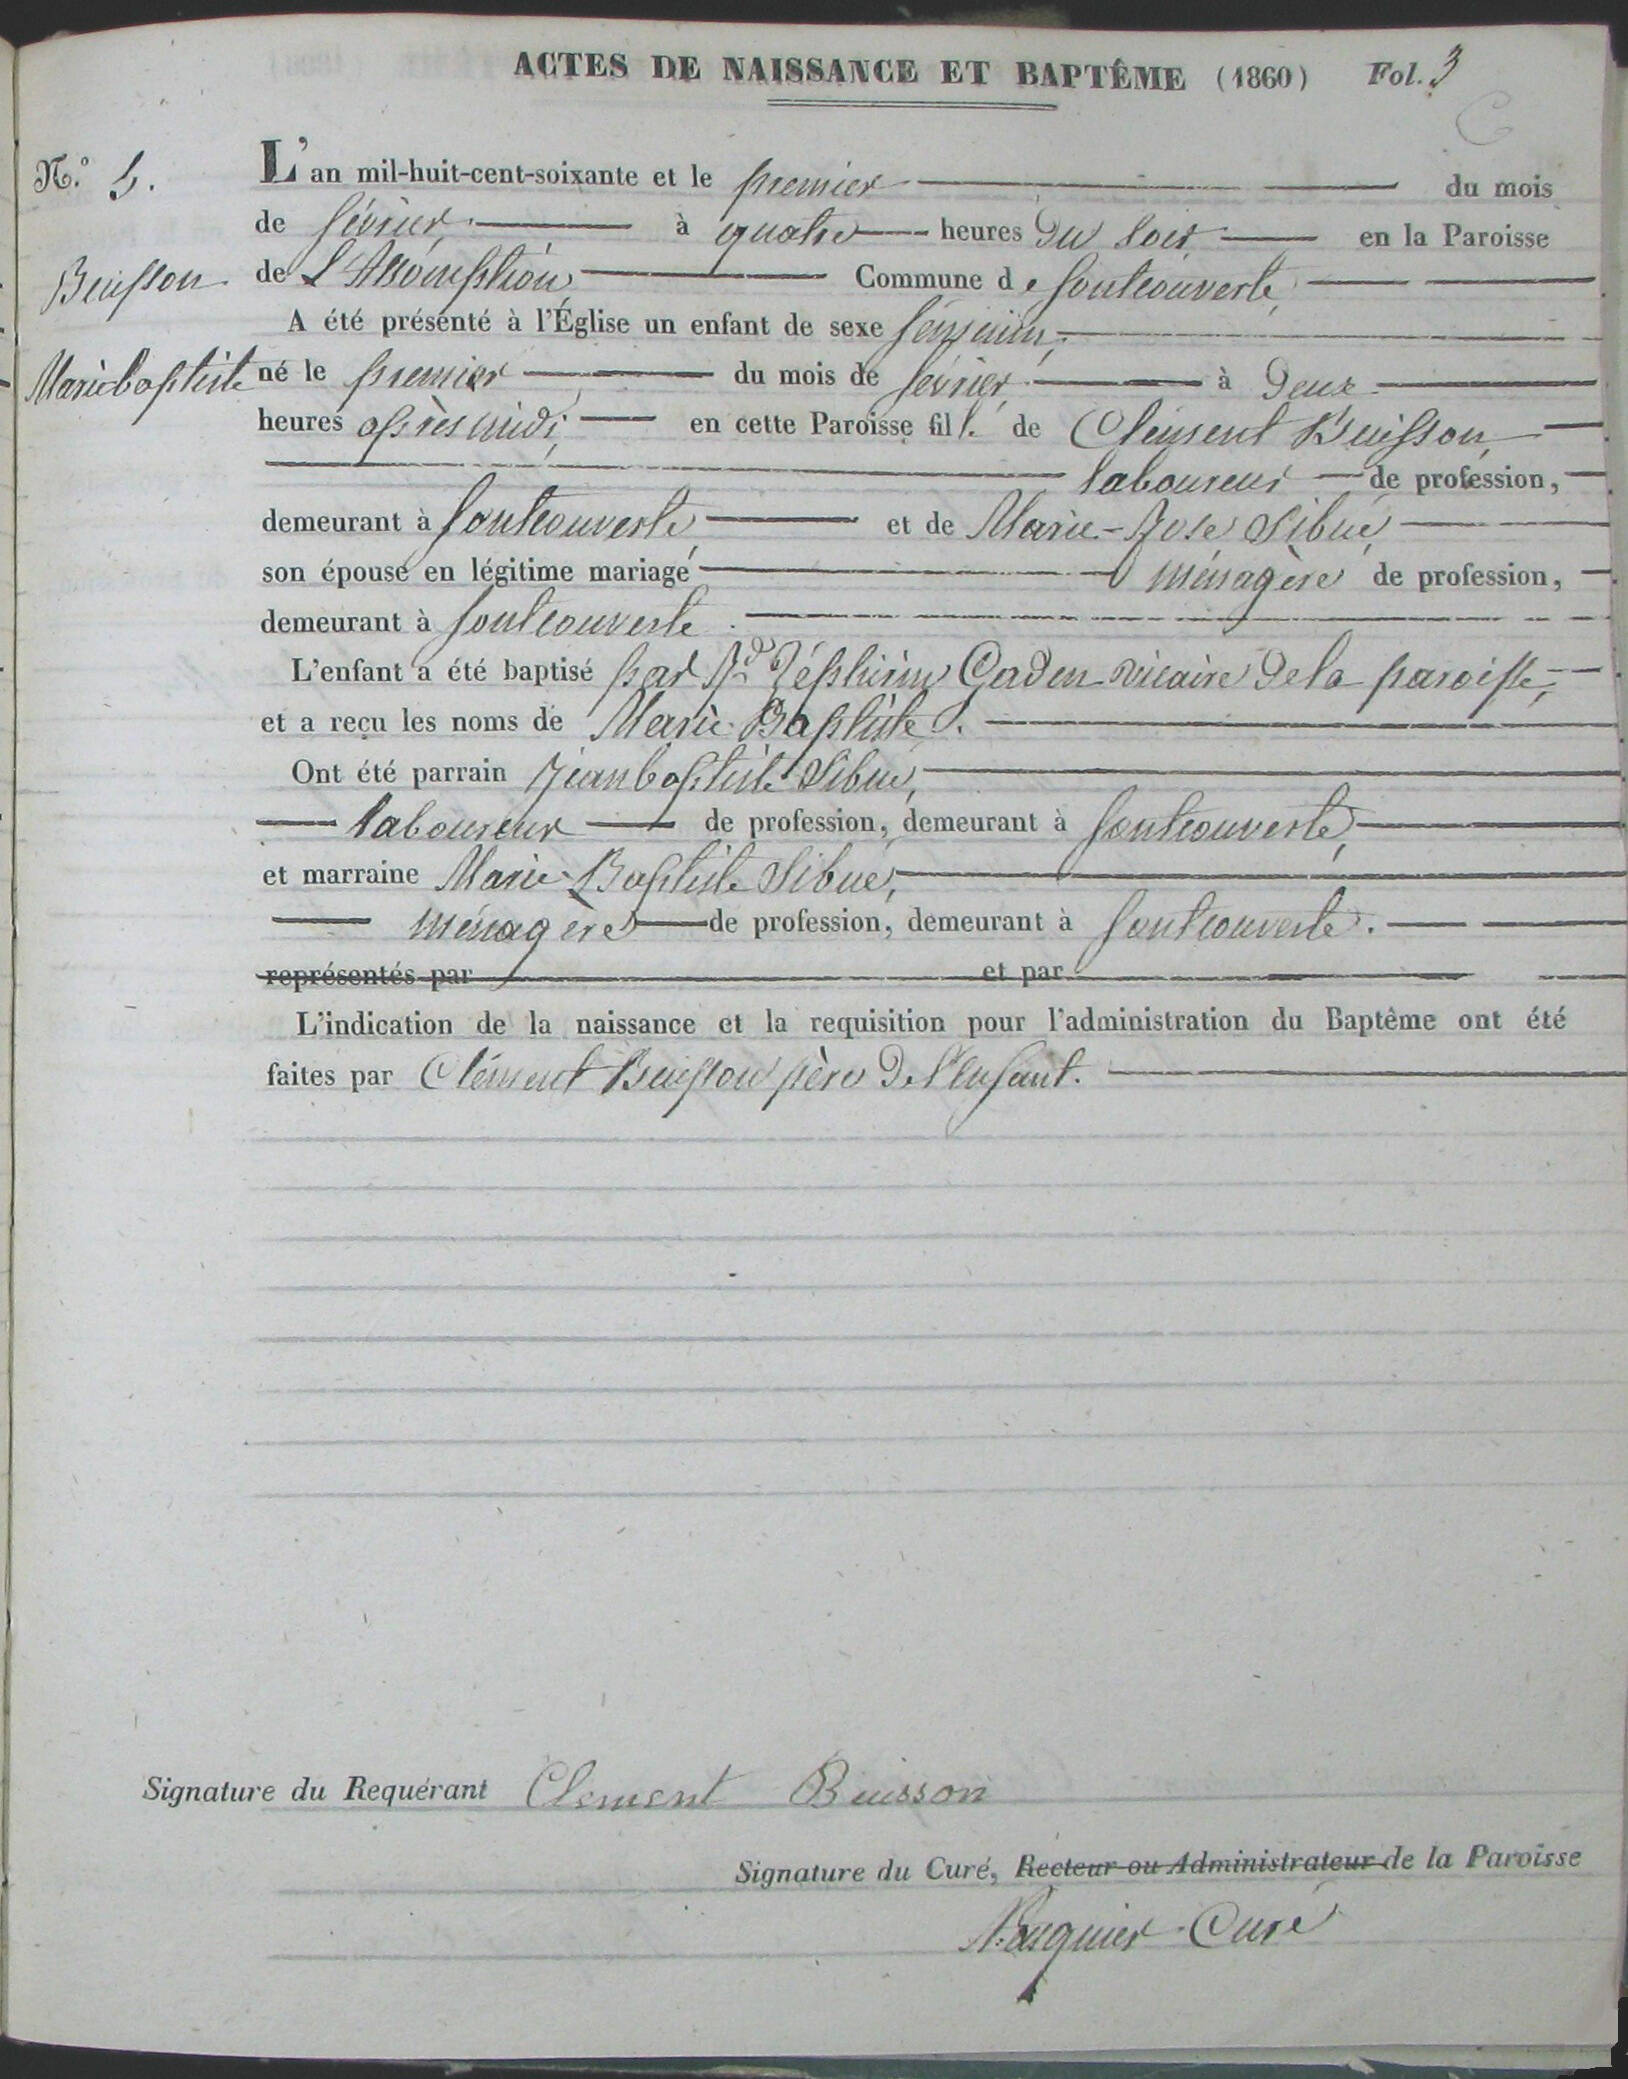 ACTES DE NAISSANCE ET BAPTÊME (1860) Fol. 3
N.° 5.
L'an mil-huit-cent-soixante et le premier du mois
de février, à quatre heures du soir en la Paroisse
Buisson de L'Assomption Commune de fontcouverte,
A été présenté à l'Église un enfant de sexe féminin,
Marie baptiste né le premier du mois de février, à deux
heures après midi, en cette Paroisse fille de Clément Buisson,
laboureur de profession,
demeurant à fontcouverte, et de Marie-Rose Sibué,
son épouse en légitime mariage ménagère de profession,
demeurant à fontcouverte.
L'enfant a été baptisé par Rd Zéphirin Gaden vicaire de la paroisse,
et a reçu les noms de Marie-Baptiste.
Ont été parrain Jean baptiste Sibué,
laboureur de profession, demeurant à fontcouverte,
et marraine Marie-Baptiste Sibué,
ménagère de profession, demeurant à fontcouverte.
représentés par et par
L'indication de la naissance et la requisition pour l'administration du Baptême ont été
faites par Clément Buisson père de l'enfant.
Signature du Requérant Clement Buisson
Signature du Curé, Recteur ou Administrateur de la Paroisse
Curé